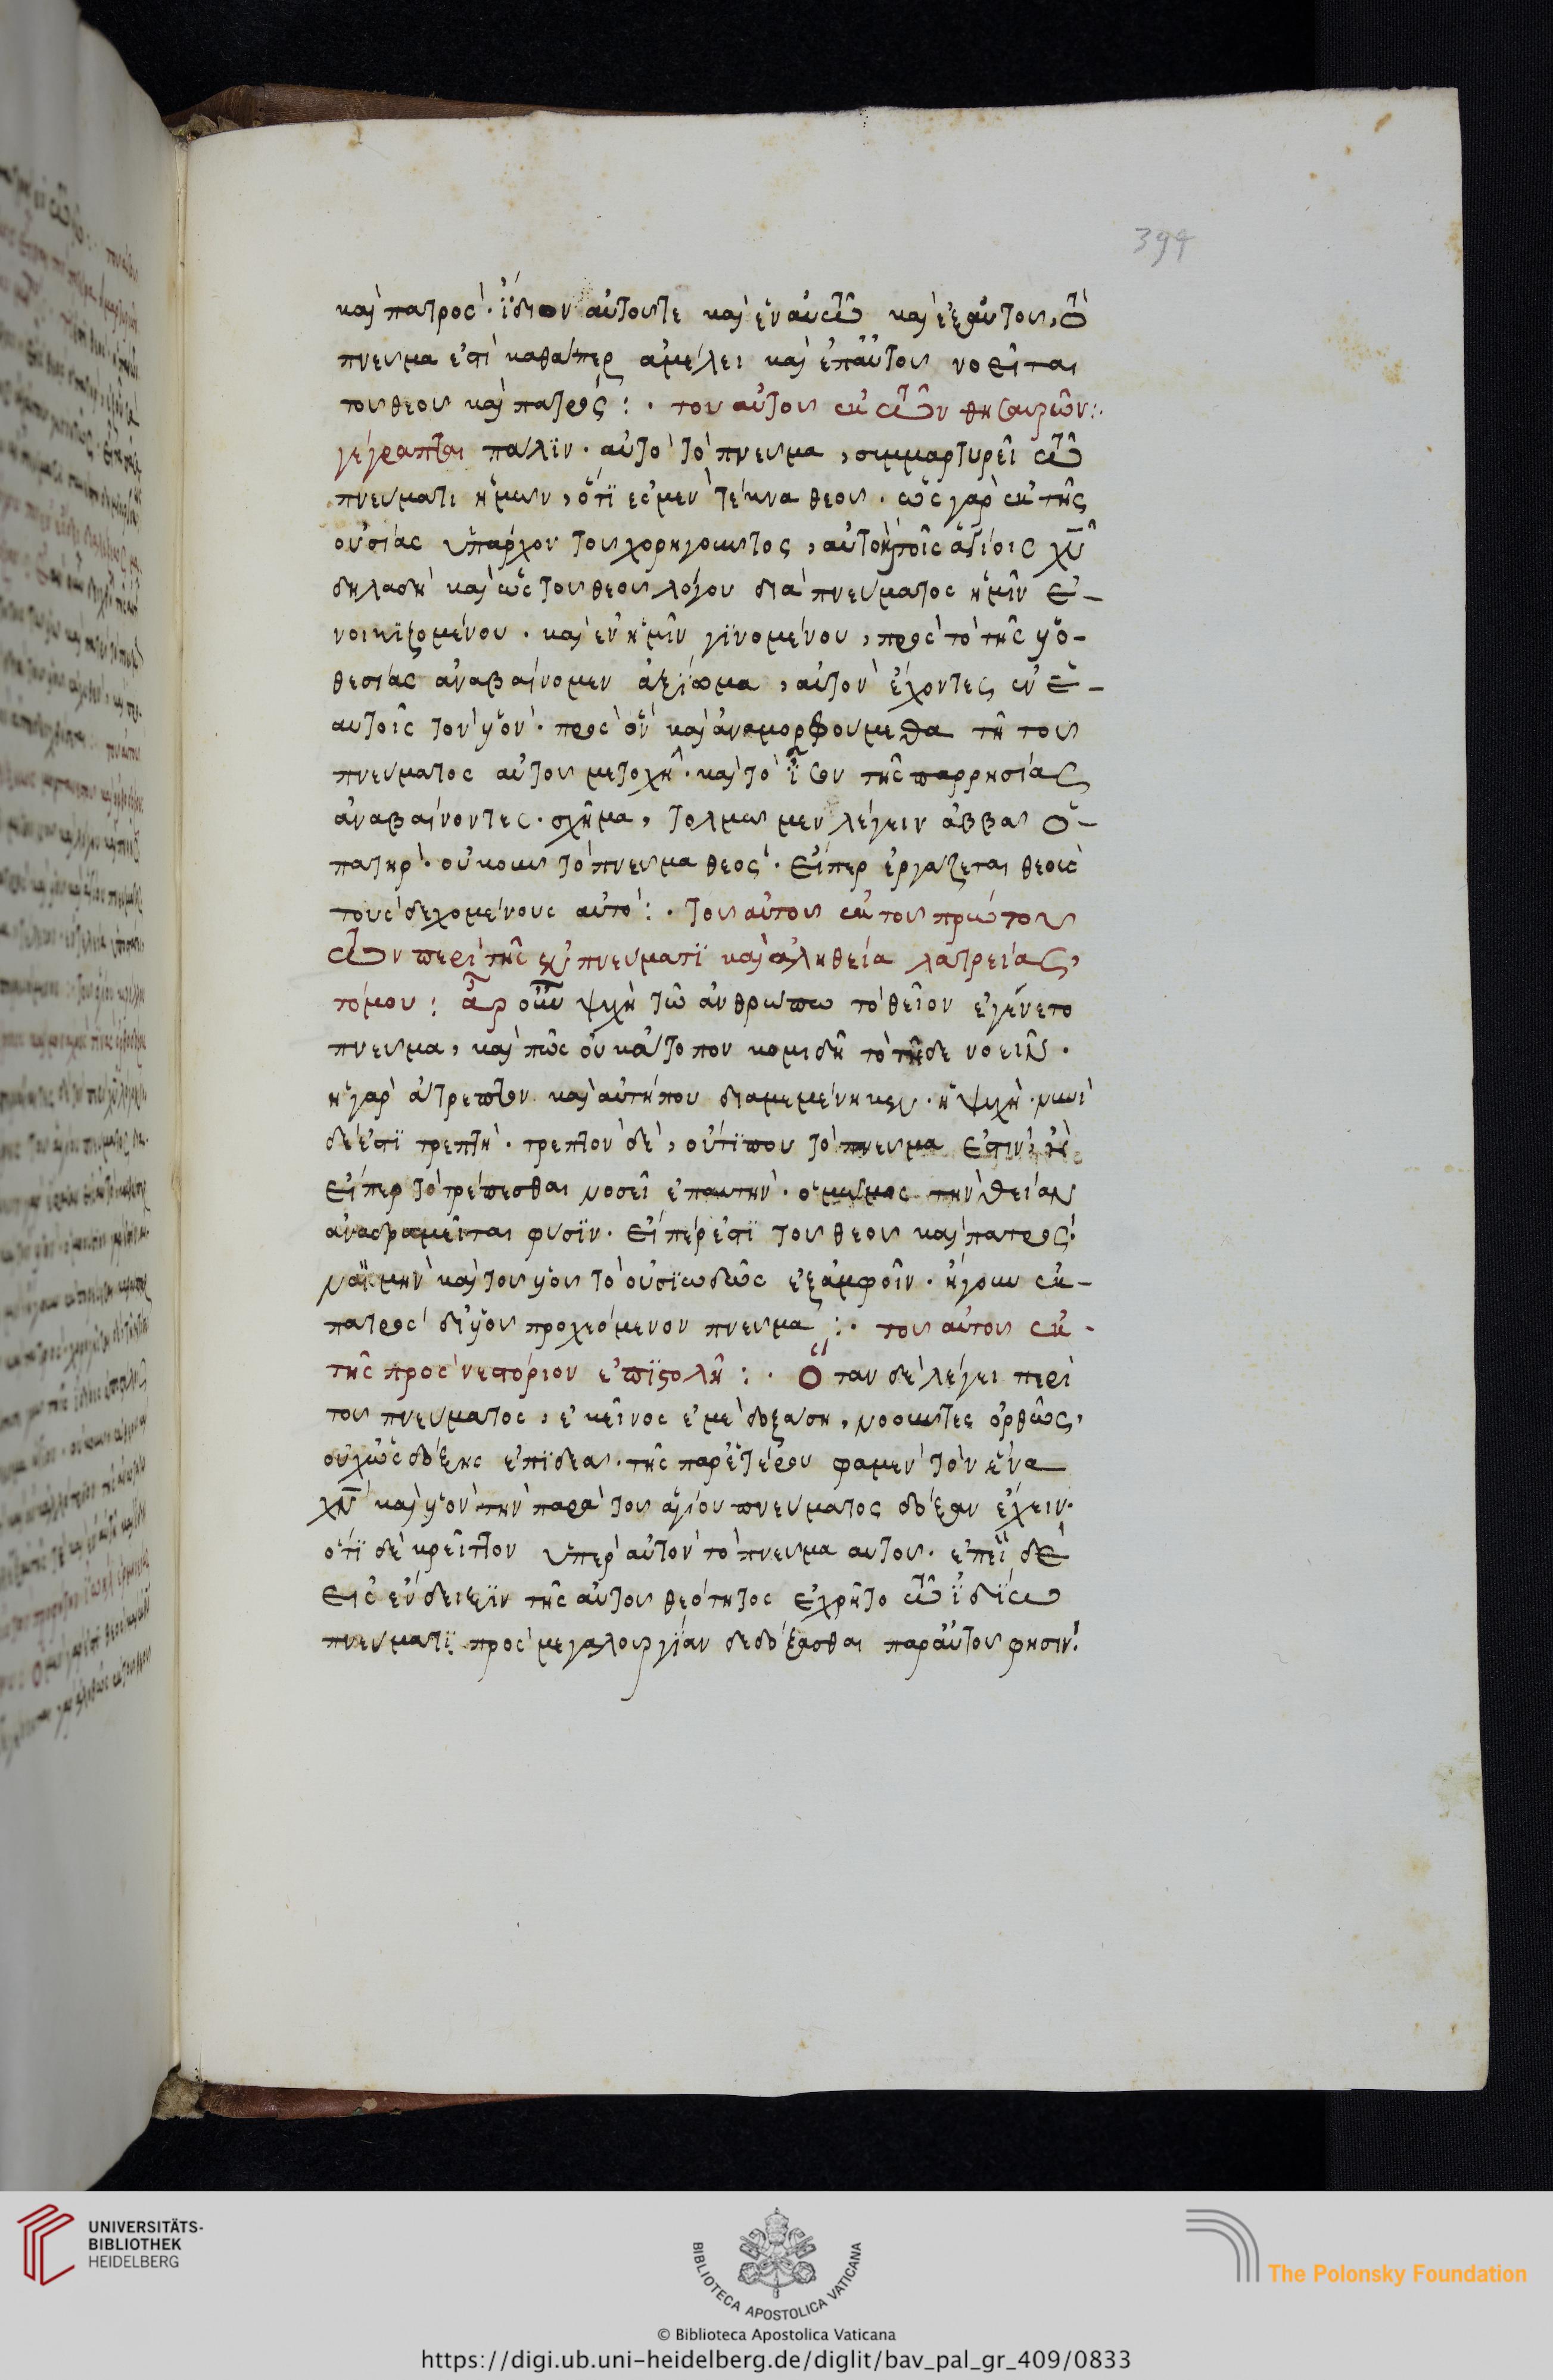 399
καὶ πατρὸς· ἴδιον αὐτοῦ τε καὶ ἐν αὐτῶ καὶ ἐξ αὐτοῦ, τὸ
πνεῦμα ἐστὶ καθάπερ ἀμέλει καὶ ἐπ αὐτοῦ νοεῖται
τοῦ θεοῦ καὶ πατρός :· τοῦ αὐτοῦ ἐκ τῶν θησαυρῶν :·
γέγραπται πάλϊν· αὐτὸ τὸ πνεῦμα, συμμαρτυρεῖ τῶ
πνεύματι ἡμῶν, ὅτϊ ἐσμὲν τέκνα θεοῦ· ὡς γὰρ ἐκ τῆς
οὐσίας ὑπάρχον τοῦ χορηγοῦντος, αὐτὸ τοῖς ἁγίοις χῦ
δηλαδὴ καὶ ὡς τοῦ θεοῦ λόγου διὰ πνεύματος ἡμῖν ἐ-
νοικϊζομένου· καὶ ἐν ἡμῖν γϊνομένου, πρὸς τὸ τῆς υἱο-
θεσίας ἀναβαίνομεν ἀξίωμα, αὐτὸν ἔχοντες ἐν ἑ-
αυτοῖς τὸν υἱόν· πρὸς ὃν καὶ ἀναμορφούμεθα τῆ τοῦ
πνεύματος αὐτοῦ μετοχῆ· καὶ τὸ ἴσον τῆς παρρησίας
ἀναβαίνοντες· σχῆμα, τολμῶμεν λέγειν ἀββᾶ ὁ-
πατήρ· οὐκοῦν τὸ πνεῦμα θεός· εἴπερ ἐργάζεται θεοὺς
τοὺς δεχομένους αὐτὸ :· τοῦ αὐτοῦ ἐκ τοῦ πρώτου
τῶν περὶ τῆς ἐν πνεύματϊ καὶ ἀληθεία λατρείας,
τόμου : ἆρ οὖν ψυχὴ τῶ ἀνθρώπω τὸ θεῖον ἐγένετο
πνεῦμα, καὶ πῶς οὐκ ἄτοπον κομιδῆ τὸ τῆδε νοεῖν·
ἦ γὰρ ἄτρεπτον καὶ αὐτή που διαμεμένηκεν· ἡ ψυχὴ· νυνὶ
δέ ἐστϊ τρεπτὴ· τρεπτὸν δὲ, οὔτϊ που τὸ πνεῦμα ἐστιν· ἢ
εἴπερ τὸ τρέπεσθαι νοσεῖ ἐπ αυτὴν· ὁ μῶμος τὴν θείαν
ἀναδραμεῖται φύσϊν· εἴπέρ ἐστϊ τοῦ θεοῦ καὶ πατρός·
ναὶ μὴν καὶ τοῦ υἱοῦ τὸ οὐσϊωδῶς ἐξ ἀμφοῖν· ἤγουν ἐκ-
πατρὸς δι υἱοῦ προχεόμενον πνεῦμα :· τοῦ αὐτοῦ ἐκ·
τῆς πρὸς νεστόριον ἐπϊστολῆ :· Ὅταν δὲ λέγει περὶ
τοῦ πνεύματος, ἐκεῖνος ἐμὲ δοξάση, νοοῦντες ὀρθῶς,
οὐχ ὡς δόξης ἐπϊδεᾶ· τῆς παρ ἑτέρου φαμὲν τὸν ἕνα
χν καὶ υἱὸν τὴν παρὰ τοῦ ἁγίου πνεύματος δόξαν ἔχειν·
ὅτϊ δὲ κρεῖττον ὑπὲρ αὐτὸν τὸ πνεῦμα αυτοῦ· ἐπεὶ δὲ
εἰς ἔνδειξϊν τῆς αὐτοῦ θεότητος ἐχρῆτο τῶ ἰδίω
πνεύματϊ πρὸς μεγαλουργίαν δεδοξᾶσθαι παρ αὐτοῦ φησιν·
UNIVERSITÄTS-
BIBLIOTHEK
HEIDELBERG
BIBLIOTECA APOSTOLICA VATICANA
The Polonsky Foundation
© Biblioteca Apostolica Vaticana
https://digi.ub.uni-heidelberg.de/diglit/bav_pal_gr_409/0833